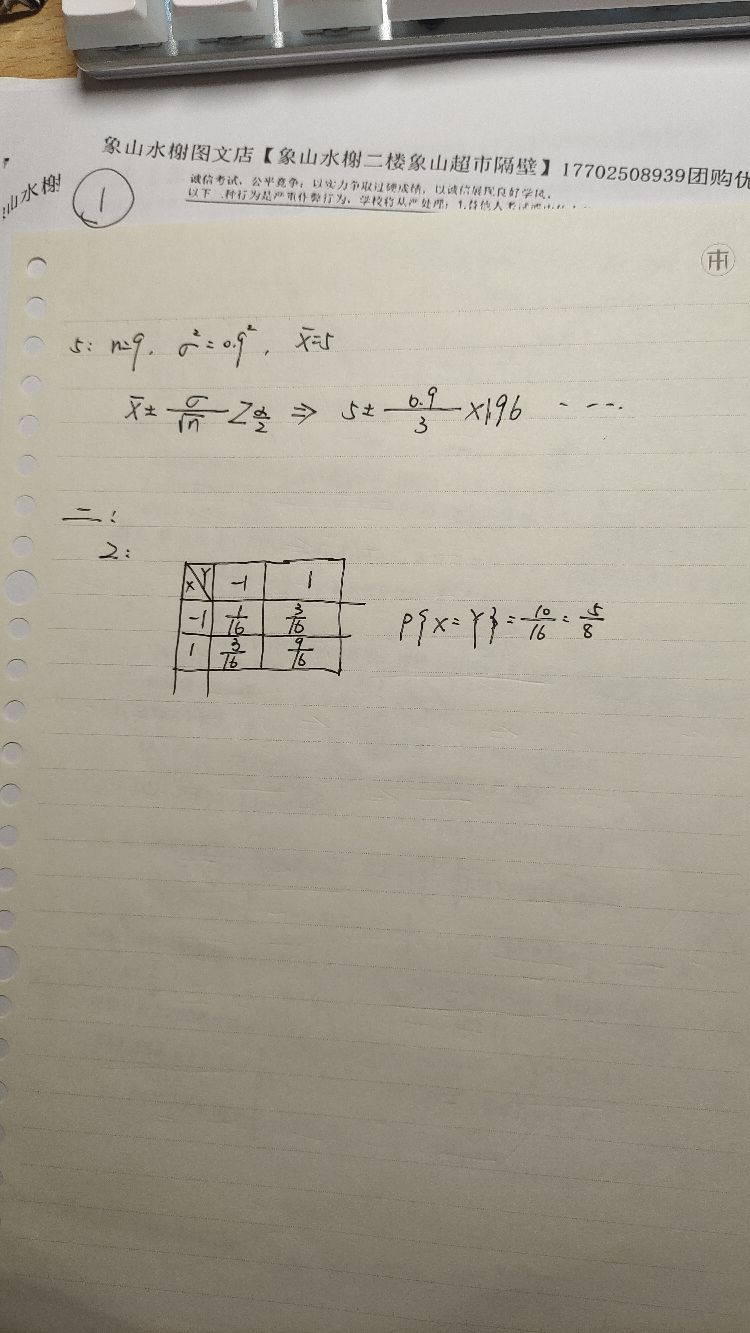 象山水榭图文店【象山水榭二楼象山超市隔壁】17702508939团购优
山水榭
①
诚信考试，公平竞争；以实力争取过硬成绩，以诚信展现良好学风。
以下 种行为是严重作弊行为，学校将从严处理：1.替他人考试
5: n=9, σ²=0.9², x̄=5
x̄± σ/√n Z α/2 ⇒ 5± 0.9/3 ×1.96 - ---.
二:
2:
X Y -1 1
-1 1/16 3/16
1 3/16 9/16
P{X=Y}=10/16=5/8